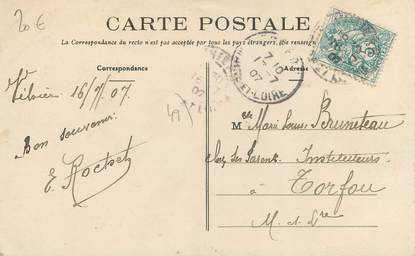 20€
CARTE POSTALE
La Correspondance du recto n'est pas acceptée par tous les pays étrangers. (Se renseigner
Correspondance
Adresse
16/7/07.
Bon souvenir
E.
49
ET-LOIRE
7 10
07
Mlle Marie Louise Bruneteau
Chez ses Parents Instituteurs
à Torfou
M. et Lre